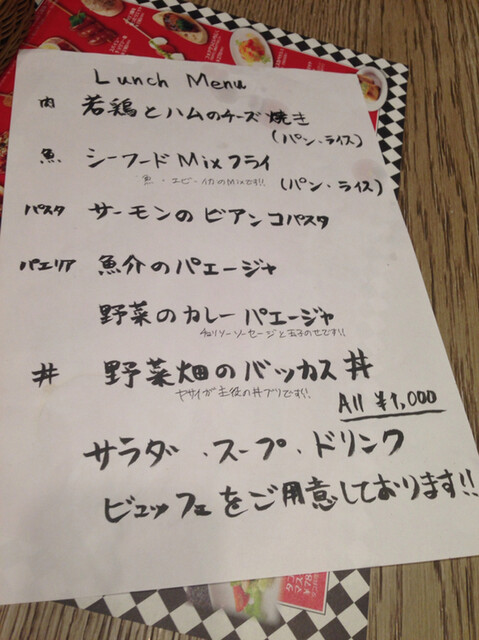 Lunch Menu
肉 若鶏とハムのチーズ焼き
(パン・ライス)
魚 シーフードMixフライ
魚・エビ・イカのMixです!! (パン・ライス)
パスタ サーモンのビアンコパスタ
パエリア 魚介のパエージャ
野菜のカレーパエージャ
チョリソーソーセージと玉子のせです!!
丼 野菜畑のバッカス丼
ヤサイが主役の丼ブリです!!
All ¥1,000
サラダ・スープ・ドリンク
ビュッフェをご用意しております!!